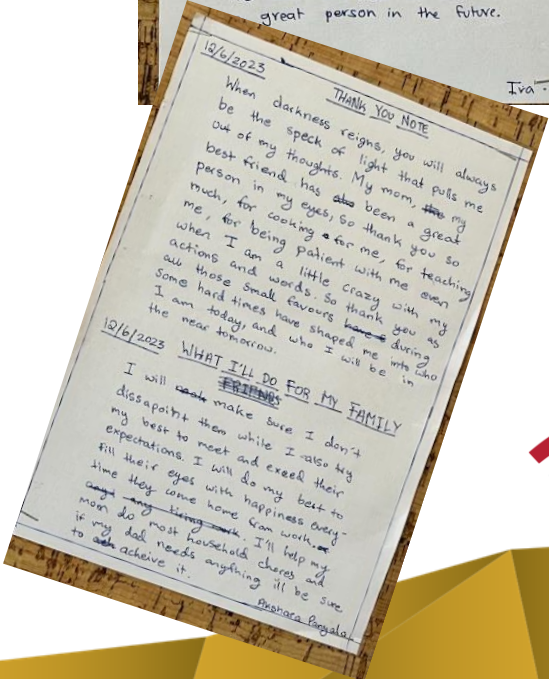 great person in the future.
Ira.
12/6/2023
THANK YOU NOTE
When darkness reigns, you will always
be the speck of light that pulls me
out of my thoughts. My mom, my
best friend has been a great
person in my eyes, so thank you so
much, for cooking for me, for teaching
me, for being patient with me even
when I am a little crazy with my
actions and words. So thank you as
all those small favours during
some hard times have shaped me into who
I am today, and who I will be in
the near tomorrow.
12/6/2023
WHAT I'LL DO FOR MY FAMILY
FRIENDS
I will make sure I don't
dissapoint them while I also try
my best to meet and exeed their
expectations. I will do my best to
fill their eyes with happiness every-
time they come home from work.
I'll help my
mom do most household chores and
if my dad needs anything ill be sure
to acheive it.
Akshara Panyala